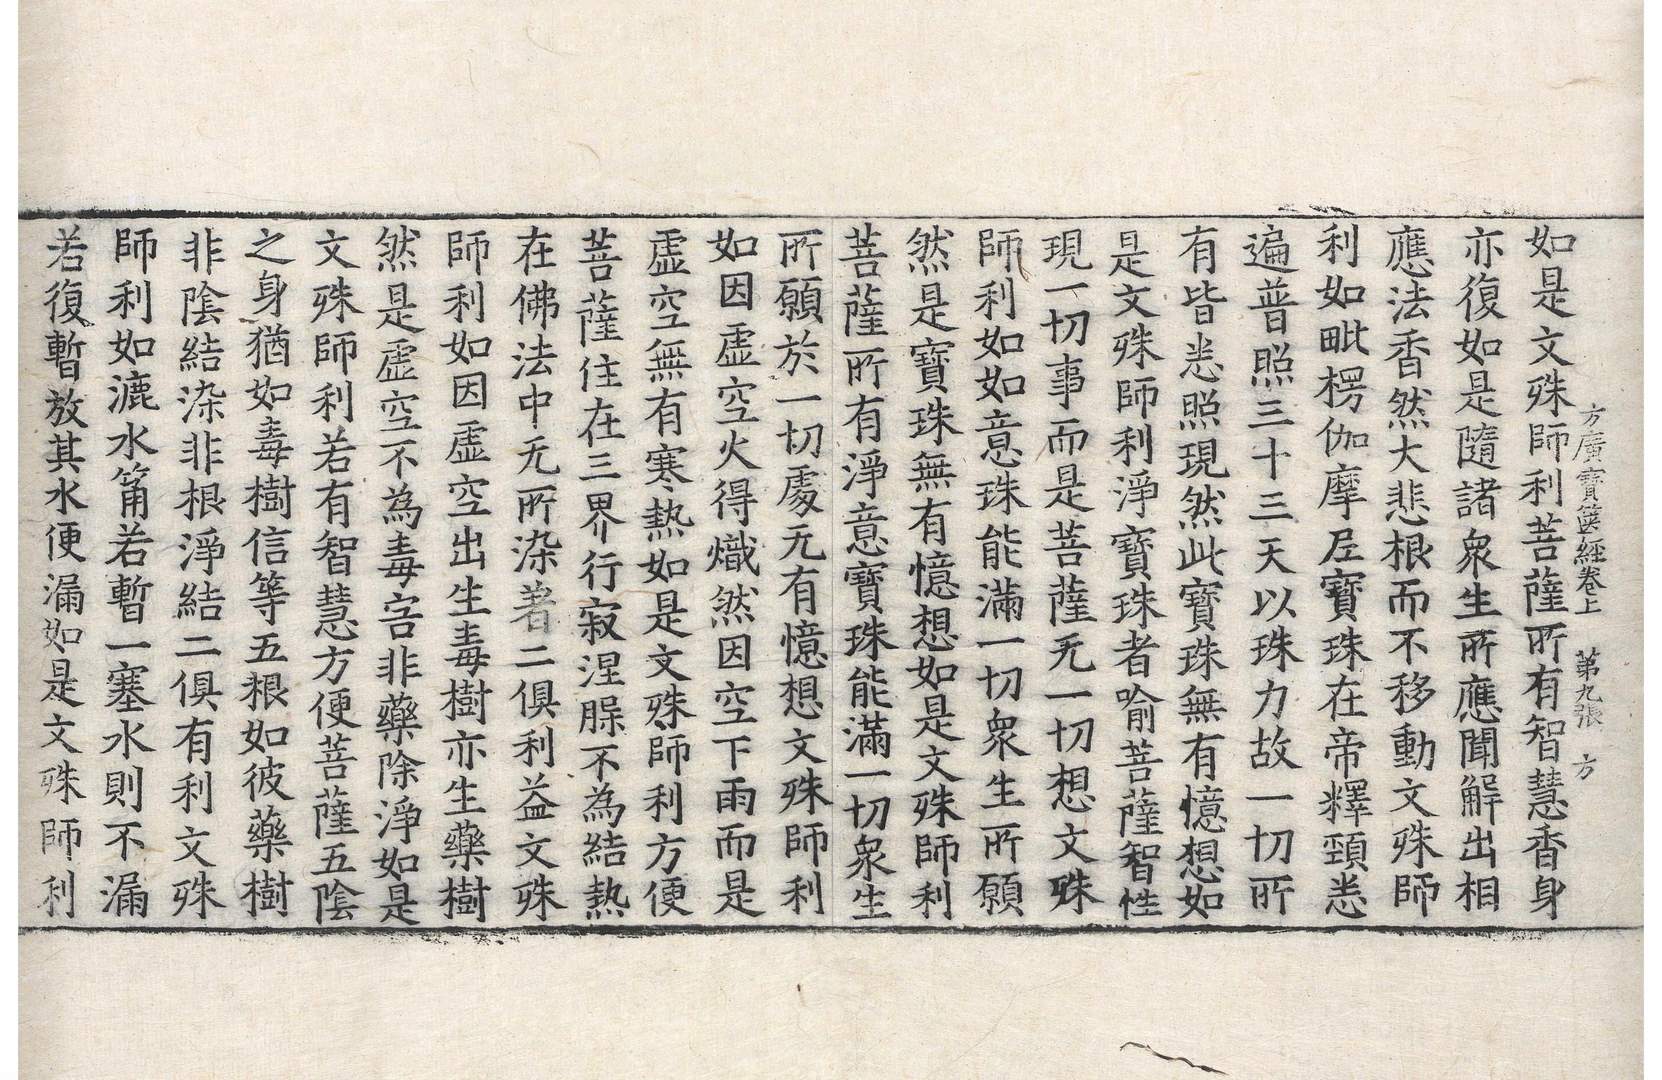 方廣寶篋經卷上　第九張　方
如是文殊師利菩薩所有智慧香身
亦復如是隨諸衆生所應聞解出相
應法香然大悲根而不移動文殊師
利如毗楞伽摩尼寶珠在帝釋頸悉
遍普照三十三天以珠力故一切所
有皆悉照現然此寶珠無有憶想如
是文殊師利淨寶珠者喻菩薩智性
現一切事而是菩薩无一切想文殊
師利如如意珠能滿一切衆生所願
然是寶珠無有憶想如是文殊師利
菩薩所有淨意寶珠能滿一切衆生
所願於一切處无有憶想文殊師利
如因虛空火得熾然因空下雨而是
虛空無有寒熱如是文殊師利方便
菩薩住在三界行寂涅槃不為結熱
在佛法中无所染著二俱利益文殊
師利如因虛空出生毒樹亦生藥樹
然是虛空不為毒害非藥除淨如是
文殊師利若有智慧方便菩薩五陰
之身猶如毒樹信等五根如彼藥樹
非陰結染非根淨結二俱有利文殊
師利如漉水筩若暫一塞水則不漏
若復暫放其水便漏如是文殊師利